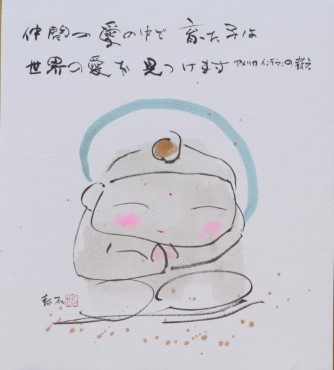 仲間の愛の中で育った子は
世界の愛を見つけますアメリカインディアンの教え